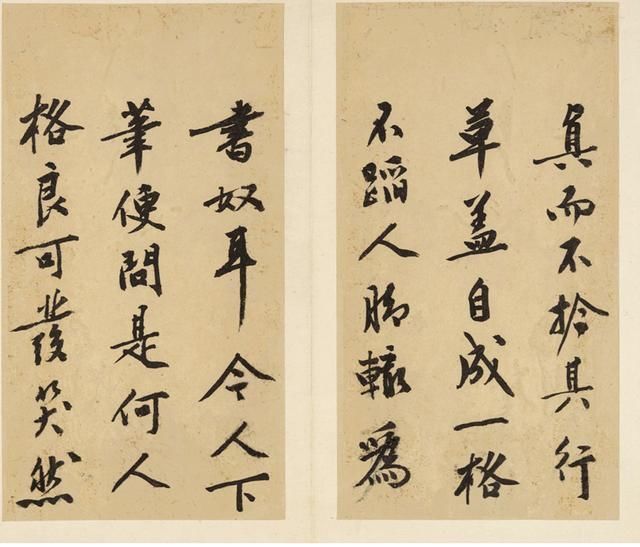 真而不拾其行
草盖自成一格
不蹈人脚轍為
書奴耳今人下
筆便問是何人
格良可發笑然